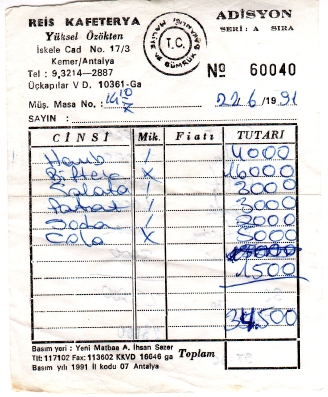 REİS KAFETERYA
Yüksel Özökten
İskele Cad No. 17/3
Kemer/Antalya
Tel : 9,3214—2887
Üçkapılar V D. 10361-Ga
ADİSYON
SERİ : A SIRA
MALİYE VE GÜMRÜK BAKANLIĞI
T.C.
№ 60040
Müş. Masa No. :
22 6 /19 91
SAYIN :
CİNSİ Mik. Fiatı TUTARI
/ 4000
X 16000
Salata / 3000
/ 3000
Soda / 2000
Cola X 5000
1500
34.500
Toplam
Basım yeri : Yeni Matbaa A. İhsan Sezer
Tlt: 117102 Fax: 113602 KKVD 16646 ga
Basım yılı 1991 İl kodu 07 Antalya